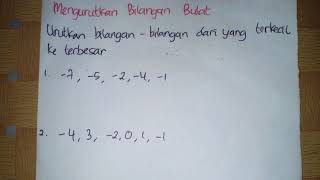 Mengurutkan Bilangan Bulat
Urutkan bilangan - bilangan dari yang terkecil
ke terbesar
1. -7, -5, -2, -4, -1
2. -4, 3, -2, 0, 1, -1